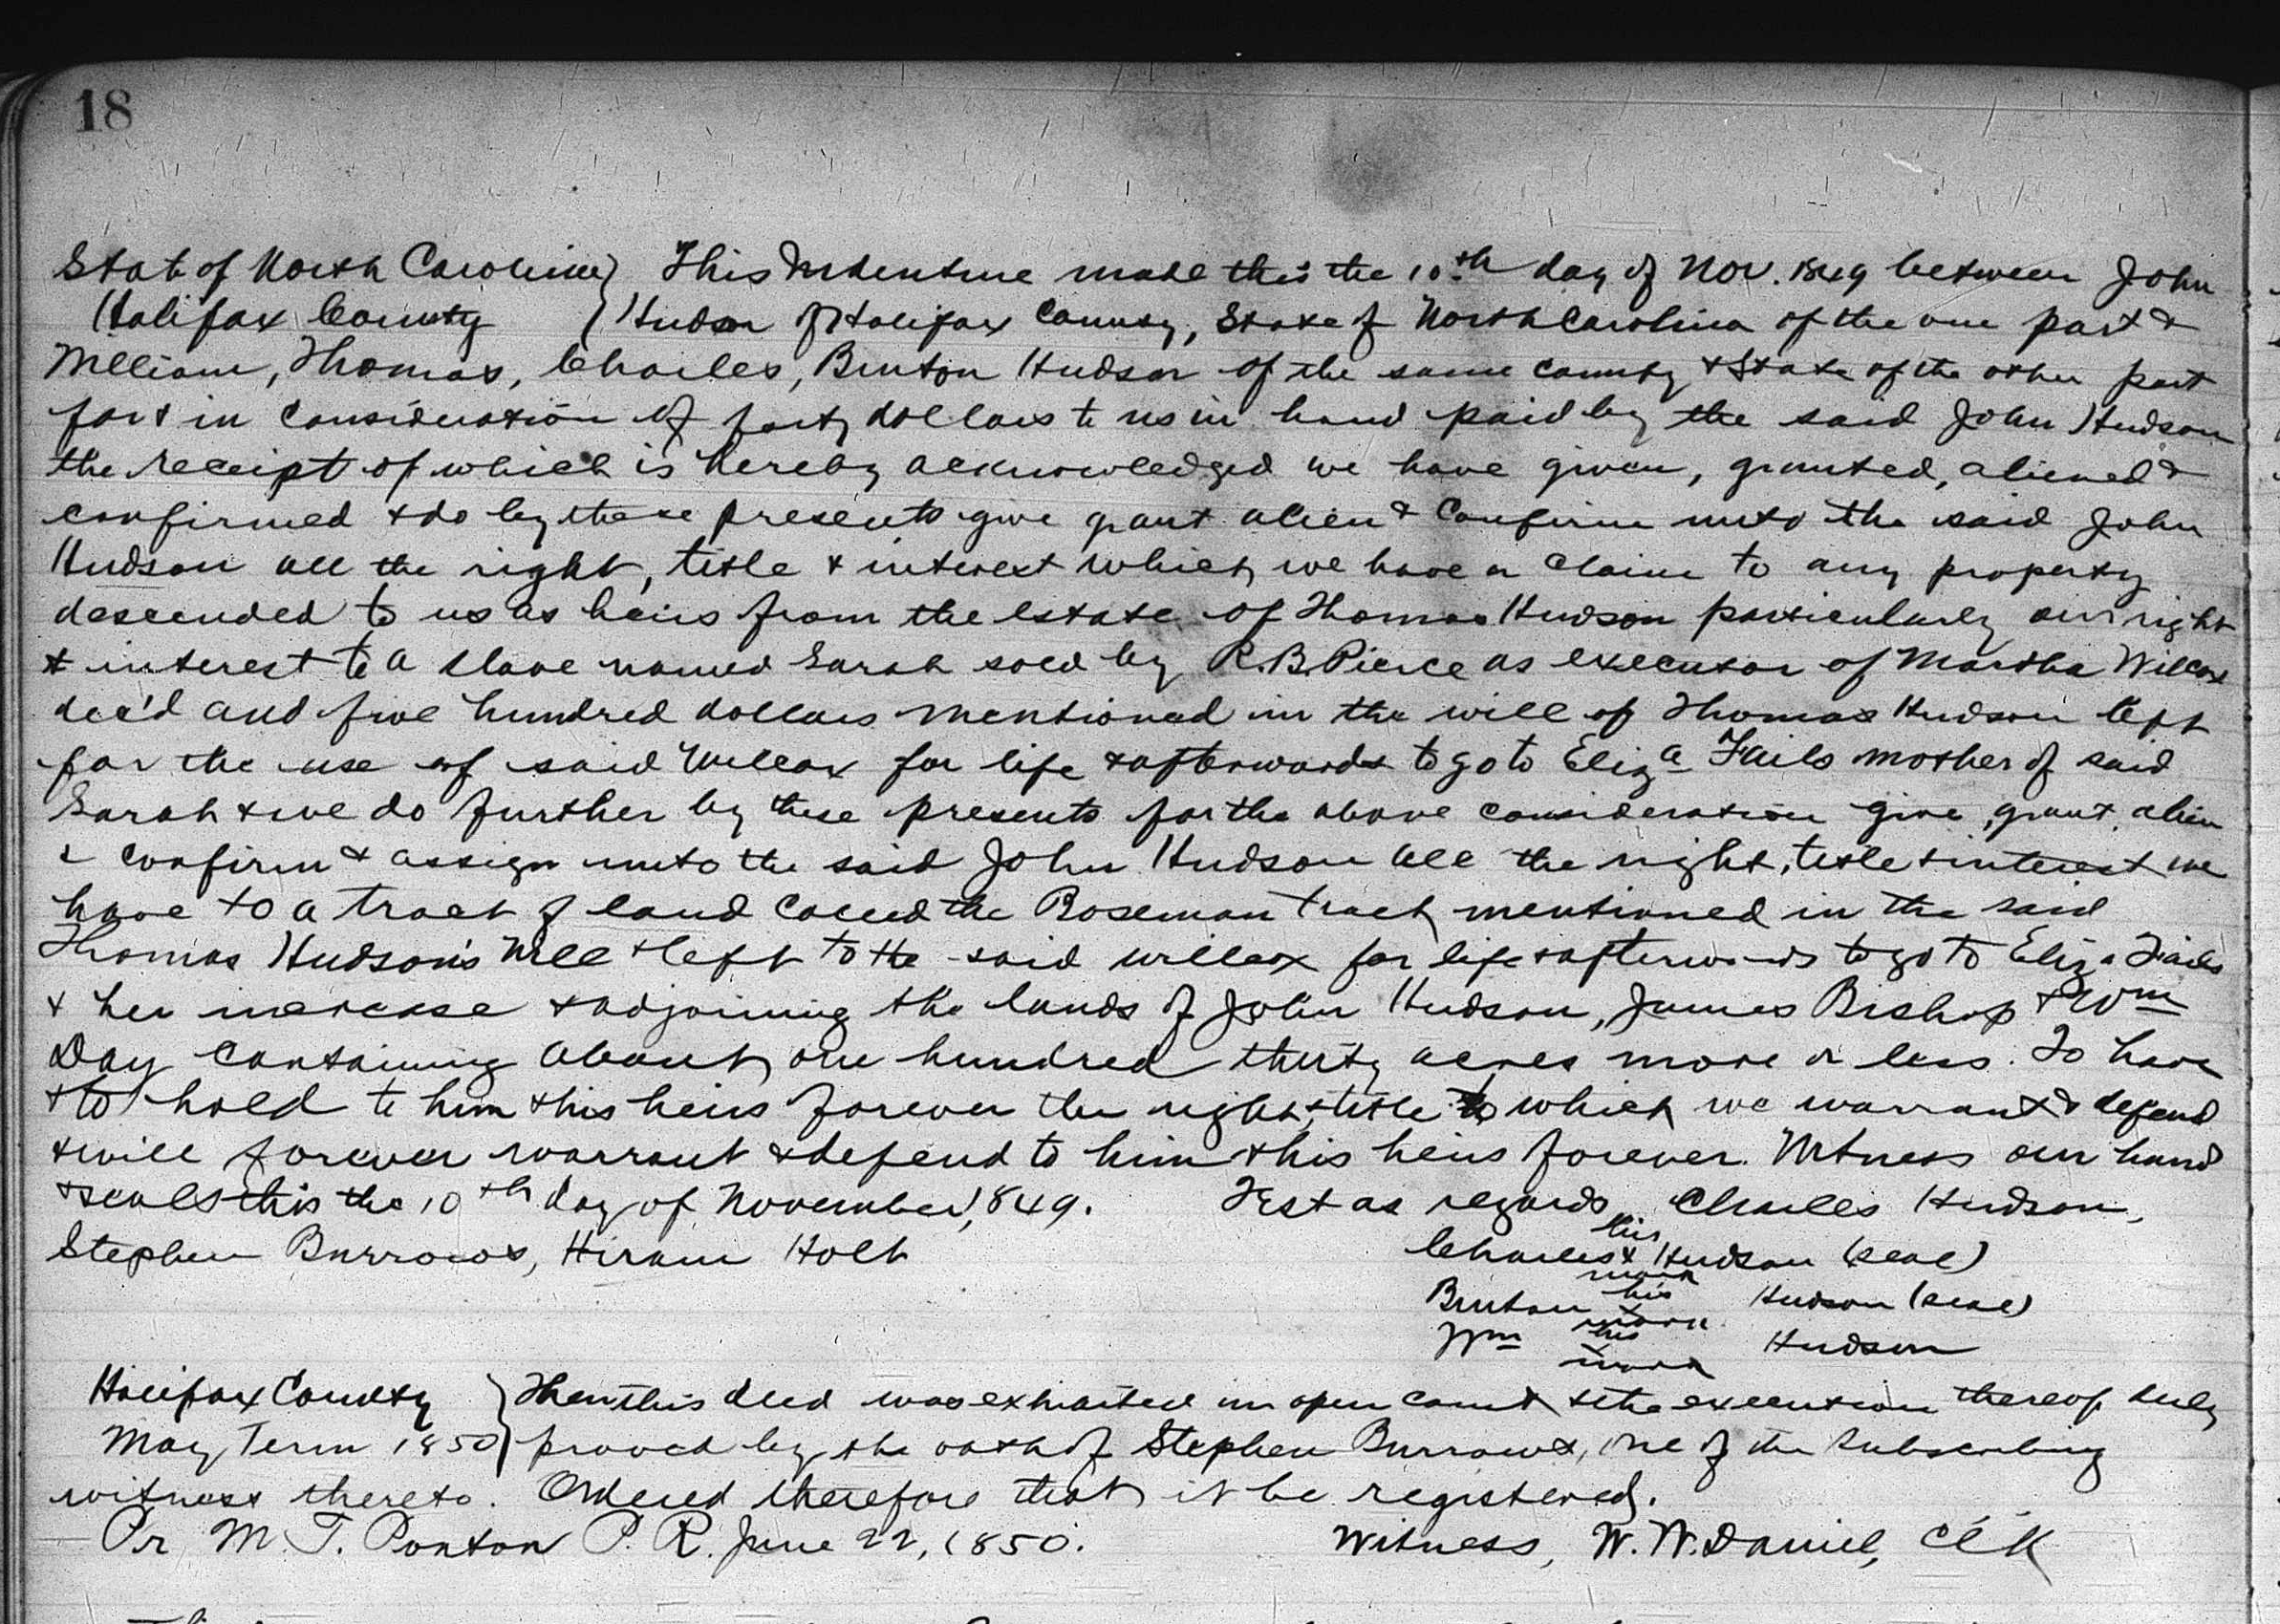 18
State of North Carolina) This Indenture made this the 10th day of Nov. 1849 between John
Halifax County ) Hudson of Halifax County, State of North Carolina of the one part &
William, Thomas, Charles, Binton Hudson of the same county & State of the other part
for & in consideration of forty dollars to us in hand paid by the said John Hudson
the receipt of which is hereby acknowledged we have given, granted, aliened &
confirmed & do by these presents give grant alien & confirm unto the said John
Hudson all the right, title & interest which we have or claim to any property
descended to us as heirs from the estate of Thomas Hudson particularly our right
& interest to a slave named Sarah sold by R.B. Pierce as executor of Martha Wilcox
dec'd and five hundred dollars mentioned in the will of Thomas Hudson left
for the use of said Willcox for life & afterwards to go to Eliza Fails mother of said
Sarah & we do further by these presents for the above consideration give, grant, alien
& confirm & assign unto the said John Hudson all the right, title & interest we
have to a tract of land called the Boseman tract mentioned in the said
Thomas Hudson's Will & left to the said Willcox for life & afterwards to go to Eliza Fails
& her increase & adjoining the lands of John Hudson, James Bishop & Wm
Day containing about one hundred thirty acres more or less. To have
& to hold to him & his heirs forever the right & title to which we warrant & defend
& will forever warrant & defend to him & his heirs forever. Witness our hand
& seals this the 10th day of November, 1849. Test as regards Charles Hudson,
Stephen Burrows, Hiram Holt
his
Charles x Hudson (seal)
mark
his
Binton x Hudson (seal)
mark
his
Wm x Hudson
mark
Halifax County ) Then this deed was exhibited in open court & the execution thereof duly
May Term 1850 ) proved by the oath of Stephen Burrows, one of the subscribing
witness thereto. Ordered therefore that it be registered.
Pr M. T. Ponton P. R. June 22, 1850. Witness, W. W. Daniel, Clk